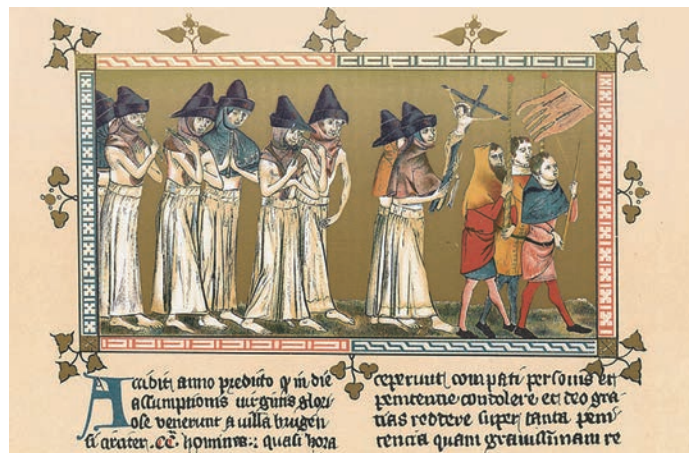 Accidit anno predicto q in die
assumptionis virginis glori
ose venerunt a villa brugen
si circiter .CC. homines: quasi hora
ceperunt compati personis et
penitencie condolere et deo gra
tias reddere super tanta peni
tencia quam gravissimam re